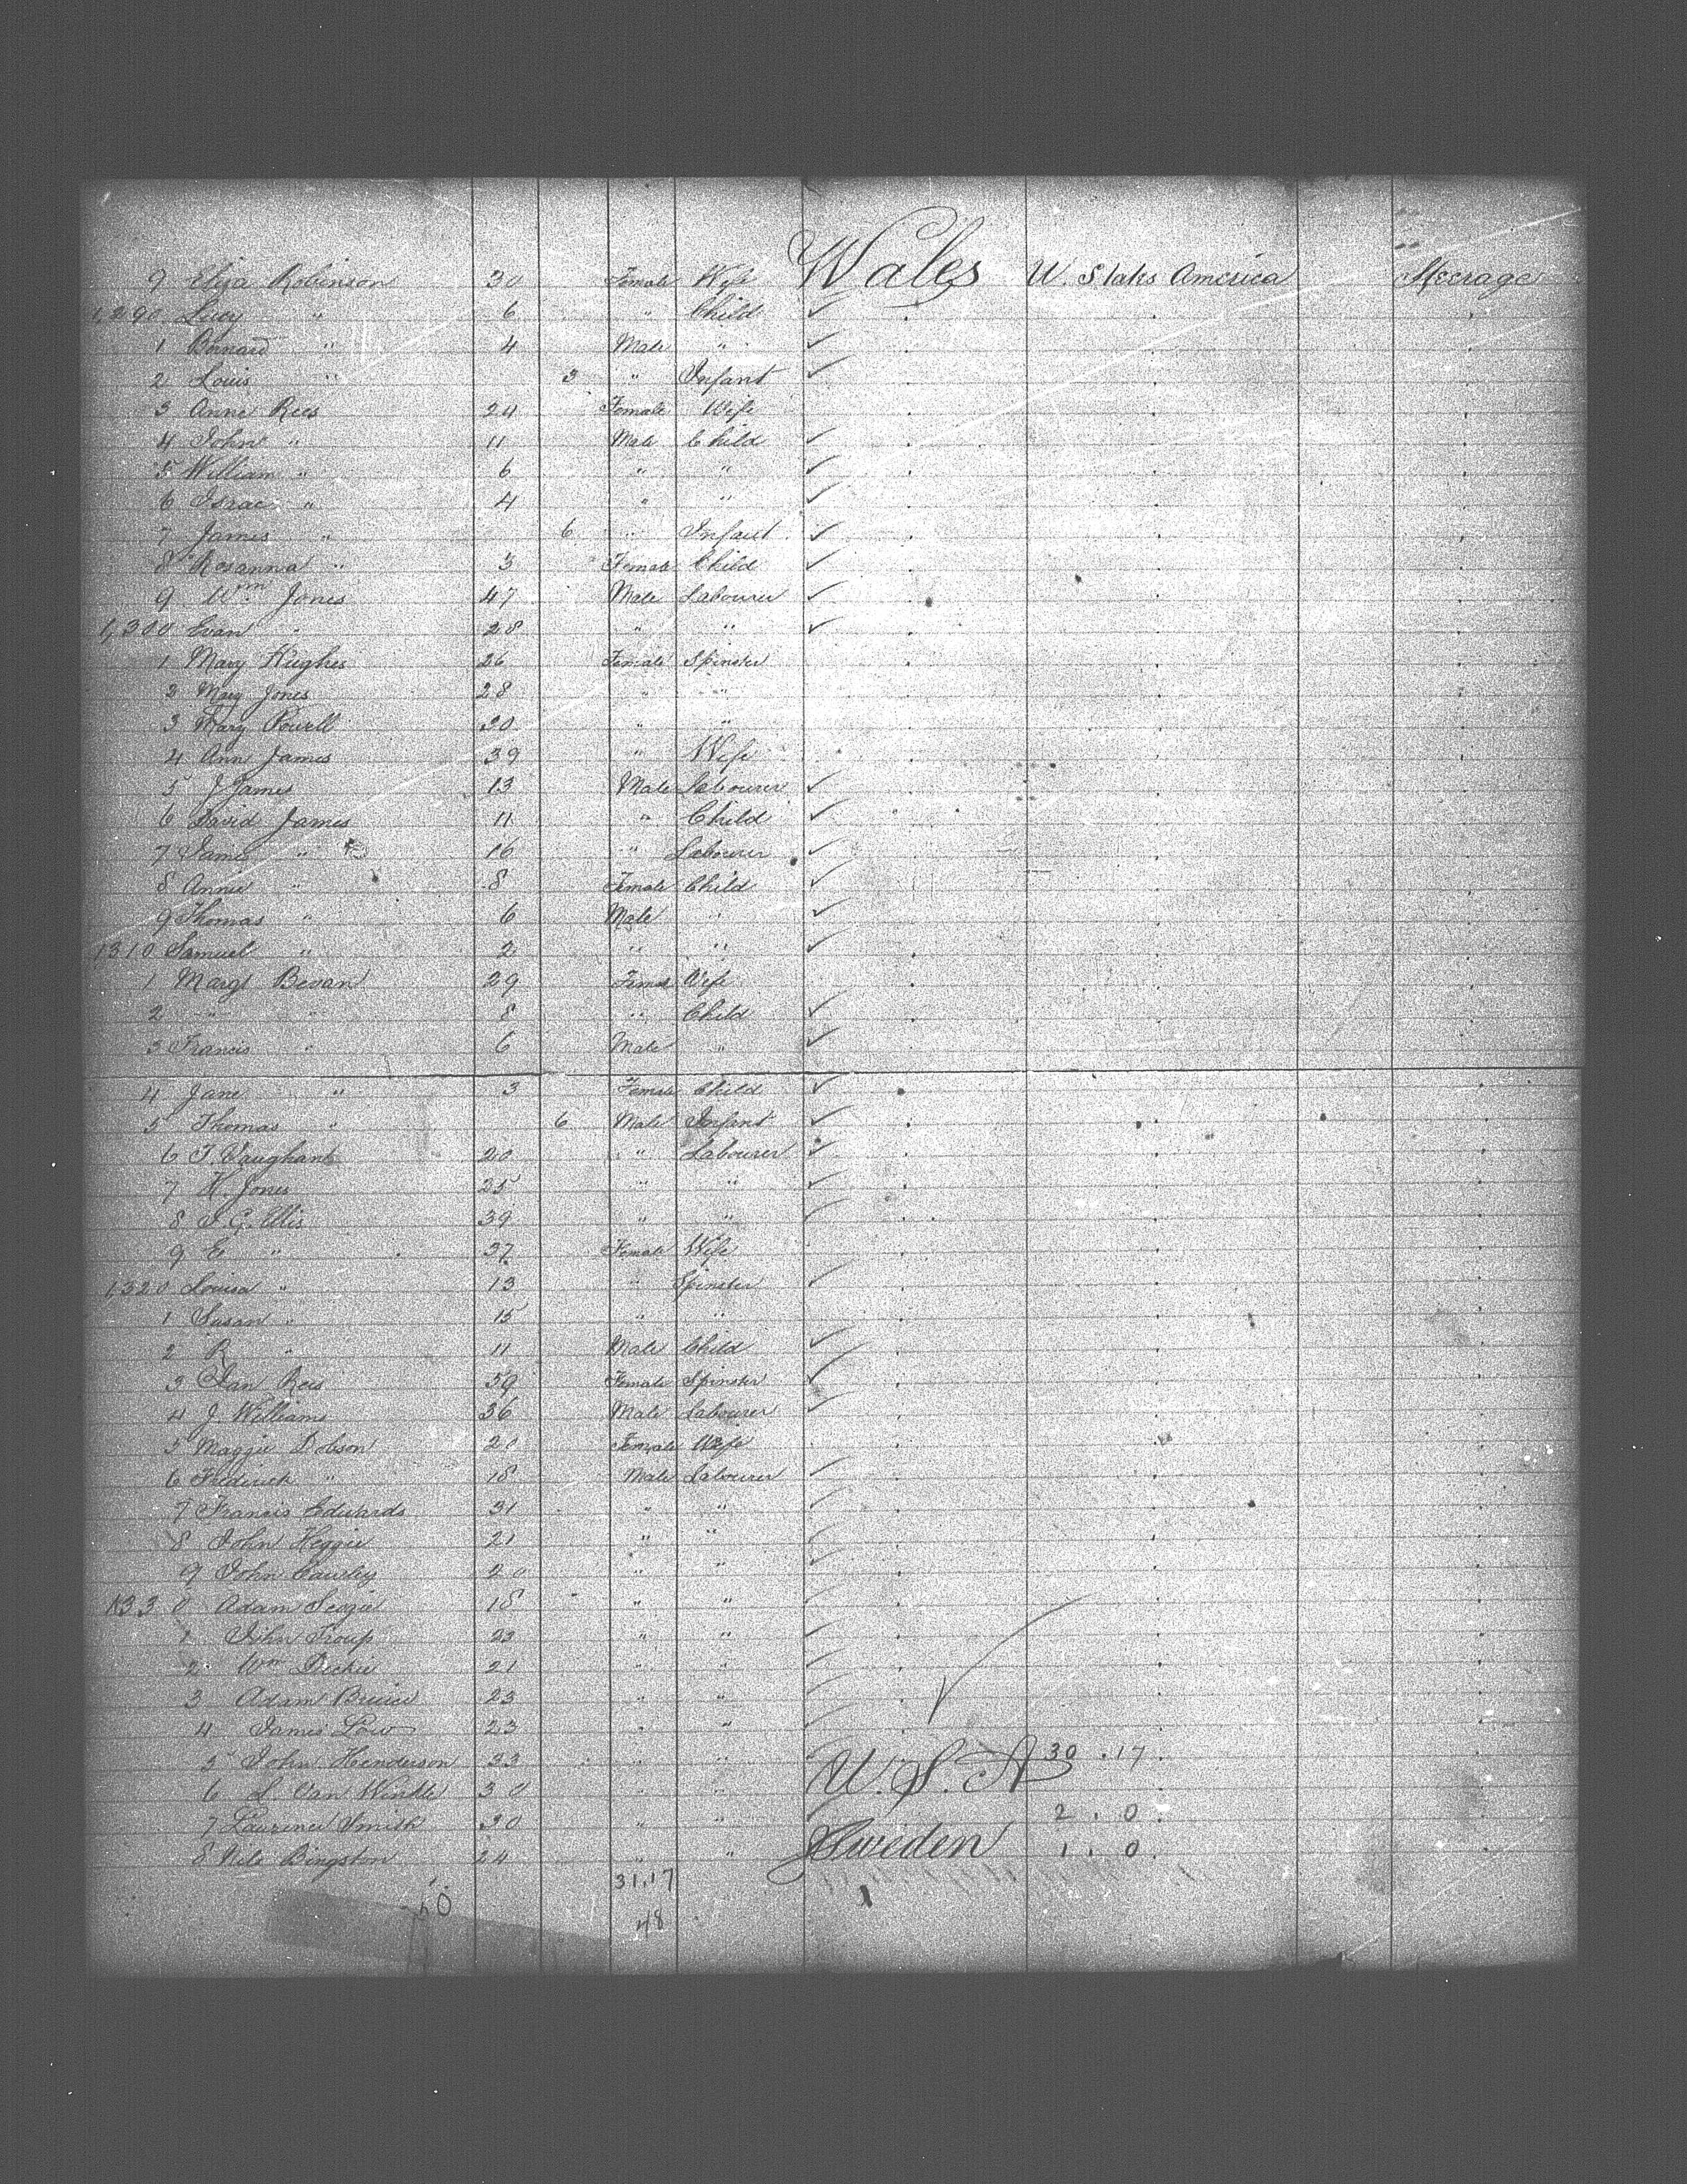 9 Eliza Robinson 30 Female Wife Wales U. States America Steerage
1,290 Lucy " 6 " Child
1 Bernard " 4 Male "
2 Louis " 3 " Infant
3 Anne Rees 24 Female Wife
4 John " 11 Male Child
5 William " 6 " "
6 Israc " 4 " "
7 James " 6 " Infant
8 Rosanna " 3 Female Child
9 Wm Jones 47 Male Labourer
1,300 Evan " 28 " "
1 Mary Hughes 26 Female Spinster
2 Mary Jones 28 " "
3 Mary Powell 30 " "
4 Ann James 39 " Wife
5 J James 13 Male Labourer
6 David James 11 " Child
7 James " 16 " Labourer
8 Annie " 8 Female Child
9 Thomas " 6 Male "
1310 Samuel " 2 " "
1 Margt Bevan 29 Female Wife
2 " " 8 " Child
3 Francis " 6 Male "
4 Jane " 3 Female Child
5 Thomas " 6 Male Infant
6 T. Vaughan 20 " Labourer
7 H. Jones 25 " "
8 J. G. Ellis 39 " "
9 E " 37 Female Wife
1,320 Louisa " 13 " Spinster
1 Susan " 15 " "
2 R " 11 Male Child
3 Jan Rees 59 Female Spinster
4 J Williams 36 Male Labourer
5 Maggie Dobson 20 Female Wife
6 Frederick " 18 Male Labourer
7 Francis Edwards 31 " "
8 John Heggie 21 " "
9 John Cawley 20 " "
1330 Adam Scogie 18 " "
1 John Troup 23 " "
2 Wm Dickie 21 " "
3 Adam Bruice 23 " "
4 James Low 23 " "
5 John Henderson 33 " " 30 . 17
6 L. Van Winkle 30 " " U.S.A
7 Laurence Smith 30 " " 2 . 0
8 Nils Bingston 24 " " Sweden 1 . 0
31.17
50 48